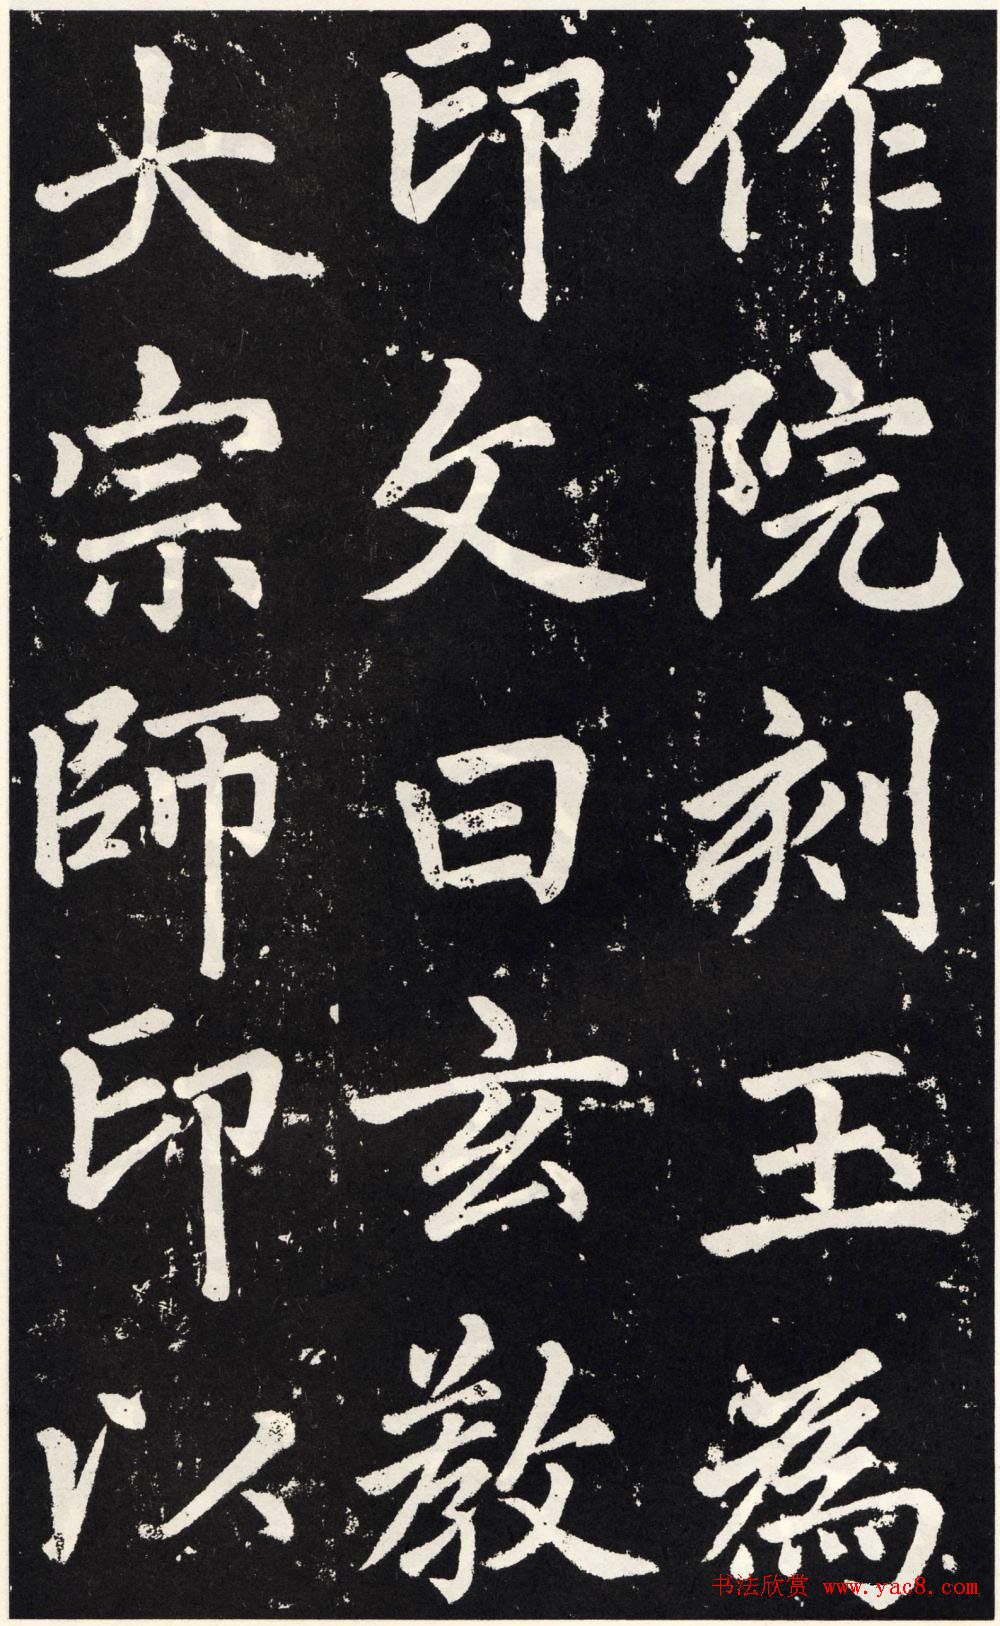 作院刻玉為
印文曰玄教
大宗師印以
书法欣赏 www.yac8.com